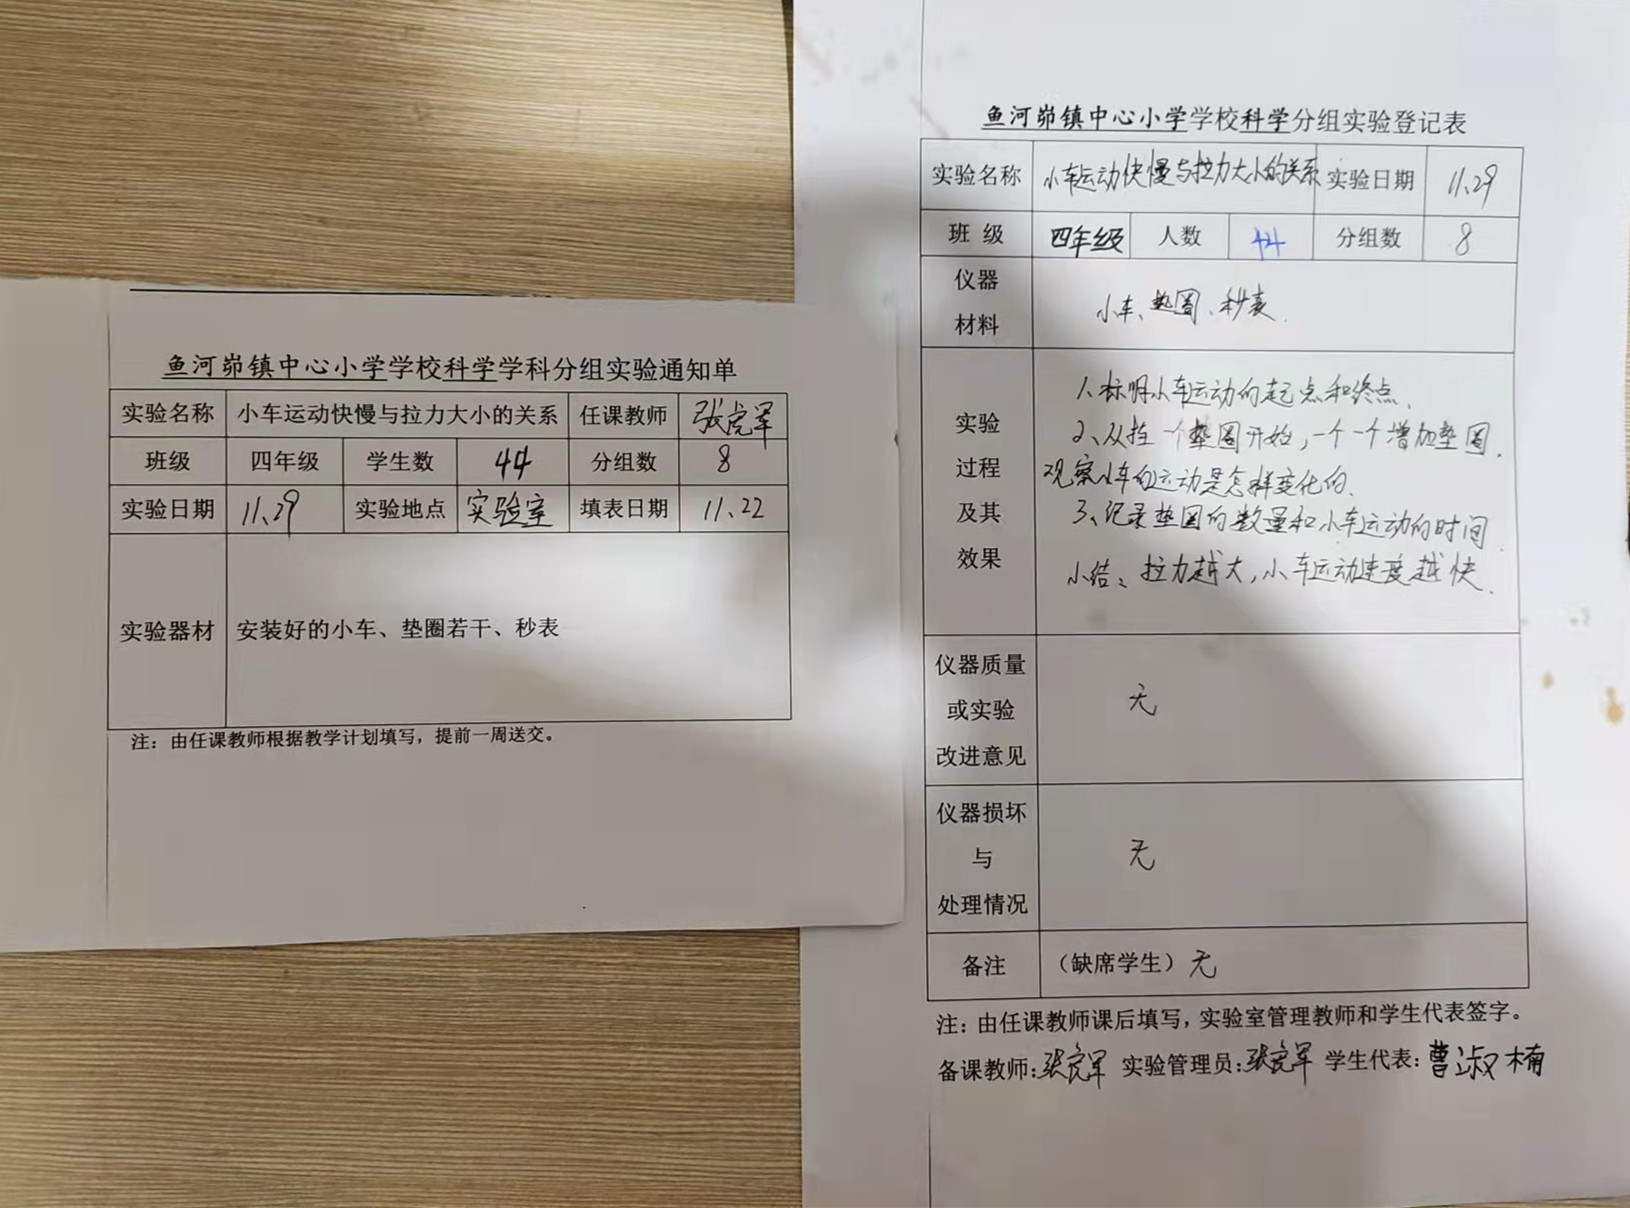 鱼河峁镇中心小学学校科学学科分组实验通知单
实验名称 小车运动快慢与拉力大小的关系 任课教师 张虎军
班级 四年级 学生数 44 分组数 8
实验日期 11、29 实验地点 实验室 填表日期 11、22
实验器材 安装好的小车、垫圈若干、秒表
注：由任课教师根据教学计划填写，提前一周送交。
鱼河峁镇中心小学学校科学分组实验登记表
实验名称 小车运动快慢与拉力大小的关系 实验日期 11、29
班 级 四年级 人数 44 分组数 8
仪器
材料
小车、垫圈、秒表.
实验
过程
及其
效果
1、标明小车运动的起点和终点.
2、从挂一个垫圈开始，一个一个增加垫圈.
观察小车的运动是怎样变化的.
3、记录垫圈的数量和小车运动的时间.
小结、拉力越大，小车运动速度越快.
仪器质量
或实验
改进意见
无
仪器损坏
与
处理情况
无
备注 （缺席学生）无
注：由任课教师课后填写，实验室管理教师和学生代表签字。
备课教师：张虎军 实验管理员：张虎军 学生代表：曹淑楠